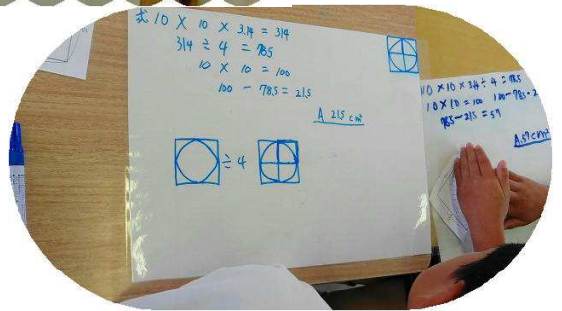 式 10 × 10 × 3.14 = 314
314 ÷ 4 = 78.5
10 × 10 = 100
100 - 78.5 = 21.5
A 21.5 cm²
÷ 4
10 × 10 × 3.14 ÷ 4 = 78.5
10 × 10 = 100 100 - 78.5 = 2
78.5 - 21.5 = 57
A. 57 cm²